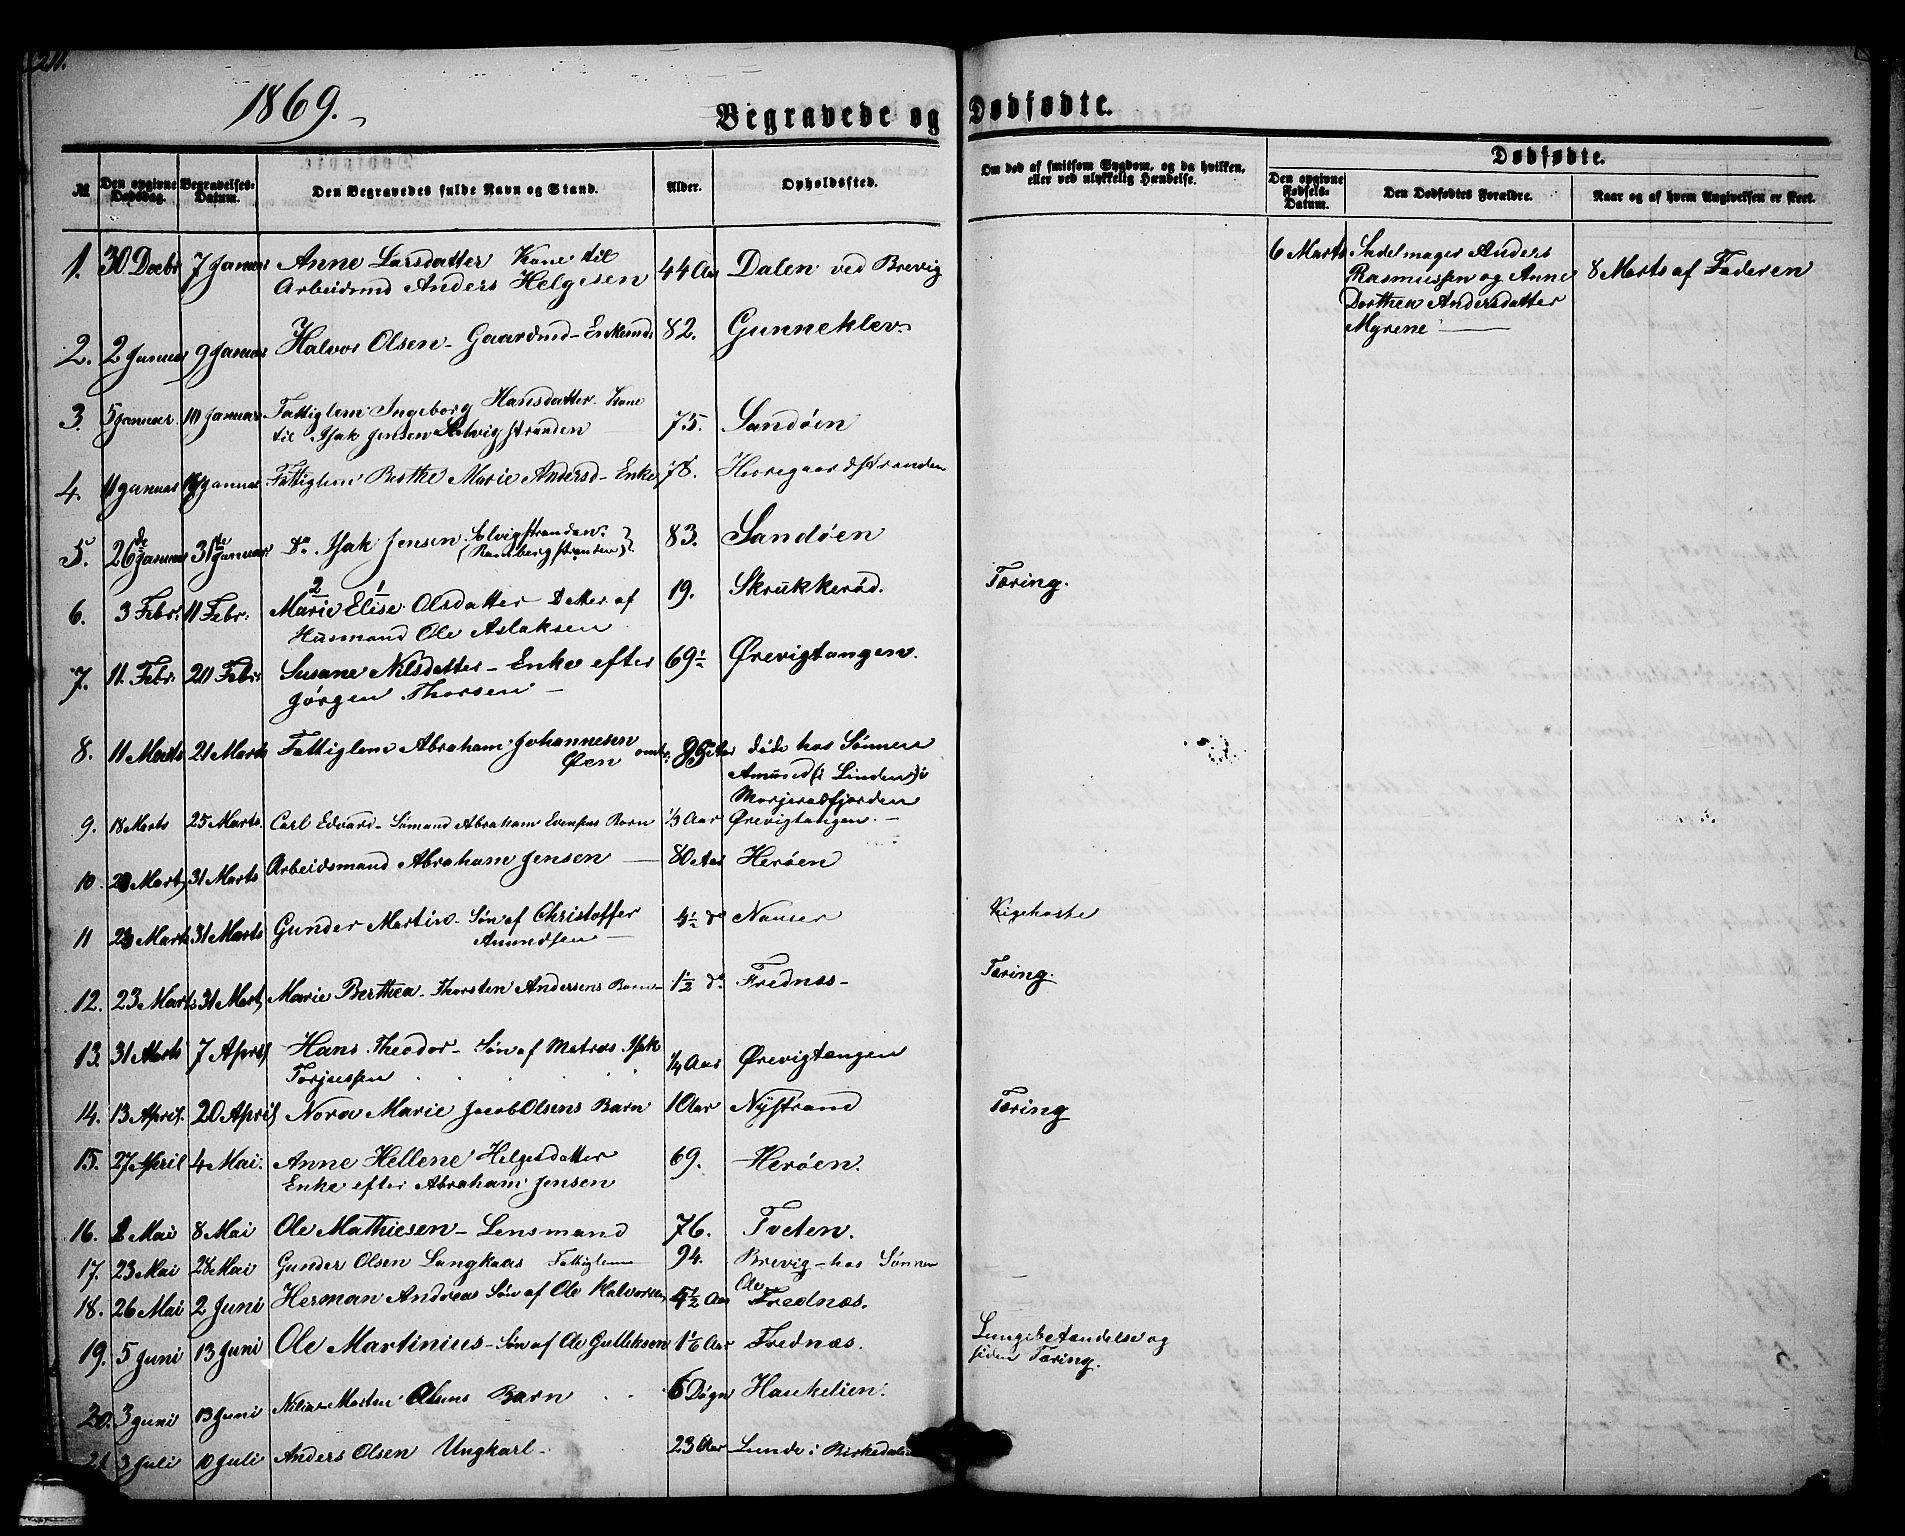 1869.
Begravede og Dødfødte.
№
Den opgivne Dødsdag.
Begravelses-Datum.
Den Begravedes fulde Navn og Stand.
Alder.
Opholdssted.
Om død af smitsom Sygdom, og da hvilken, eller ved ulykkelig Hændelse.
Dødfødte.
Den opgivne Fødsels-Datum.
Den Dødfødtes Forældre.
Naar og af hvem Angivelsen er skeet.
1. 30 Decbr 7 Januar Anne Larsdatter Kone til 44 Aar Dalen ved Brevig
Arbeidsmd Anders Helgesen
6 Marts Sadelmager Anders
Rasmussen og Anne
Dorthea Andersdatter
Myrene
8 Marts af Faderen
2. 2 Januar 9 Januar Halvor Olsen - Gaardmd - Enkemd 82. Gunneklev
3. 5 Januar 10 Januar Fattiglem Ingeborg Hansdatter Kone 75. Sandøen
til Isak Jensen Salvigstranden
4. 11 Januar Januar Fattiglem Berthe Marie Andersd - Enke 78. Heeregaardstranden
5. 26de Januar 31te Januar Do Isak Jensen Salvigstranden 83. Sandøen
(Rambergstranden).
6. 3 Febr: 11 Febr: 2 Marie 1 Elise Olsdatter Datter af 19. Skrukkerød. Tæring.
Husmand Ole Aslaksen
7. 11. Febr: 20 Febr: Susane Nilsdatter - Enke efter 69½ Ørevigtangen.
Jørgen Thorsen -
8. 11 Marts 21 Marts Fattiglem Abraham Johannesen omtr: 85 Aar døde hos Sønnen
Øen Amund (i Linden) i
Morjerødfjorden
9. 18 Marts 25 Marts. Carl Edvard - Sømand Abraham Evensens Barn ⅓ Aar Ørevigtangen. -
10. 23 Marts 31 Marts Arbeidsmand Abraham Jensen 80 Aar Herøen
11 23 Marts 31 Marts Gunder Martin - Søn af Christoffer 4½ do Kigehoste
Amundsen
12. 23 Marts 31 Marts Marie Berthea - Thorsten Andersens Barn - 1½ do Frednæs - Tæring.
13. 31 Marts 7 April Hans Theodor - Søn af Matros Isak ¼ Aar Ørevigtangen
Torjussen
14. 13 April. 20 April Nora Marie Jacob Olsens Barn 1 Aar Nystrand Tæring
15. 27 April 4 Mai. Anne Hellene Helgesdatter 69. Herøen.
Enke efter Abraham Jensen
16. 2 Mai 8 Mai Ole Mathiesen - Lensmand 76. Tveten.
17. 23 Mai 28 Mai Gunder Olsen Langkaas Fattiglem 94. Brevig - hos Sønnen
Ole
18. 26 Mai 2 Juni Herman Andreas Søn af Ole Halvorsen 4½ Aar Frednæs.
19. 5 Juni 13 Juni Ole Martinius - Søn af Ole Gulliksen Aar Frednæs. Lungebetændelse og
siden Tæring.
20. 3 Juni 13 Juni Morten Olsens Barn 6 Døgn Haukelien.
21 3 Juli 10 Juli Anders Olsen Ungkarl - 23 Aar Lunde i Birkedalen